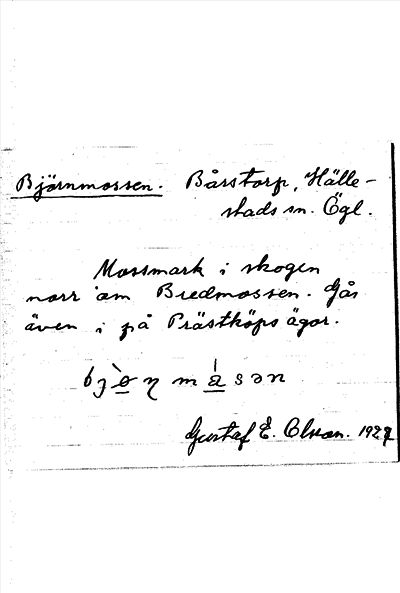 Björnmossen. Bårstorp, Hälle-
stads sn. Ögl.
Mossmark i skogen
norr om Bredmossen. Går
även i på Prästköps ägor.
Gustaf E. Olsson. 192